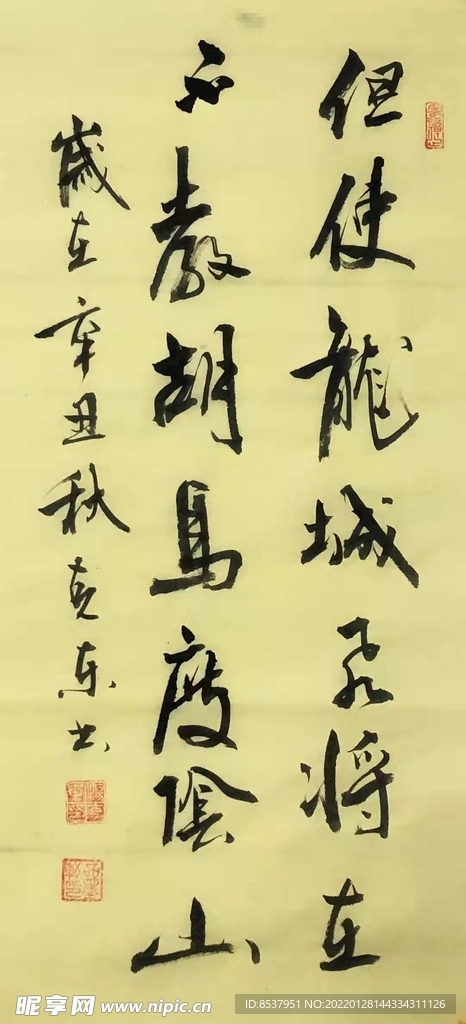 但使龍城飛将在
不教胡馬度陰山
歳在辛丑秋克东书
昵享网 www.nipic.cn
ID:8537951 NO:20220128144334311126